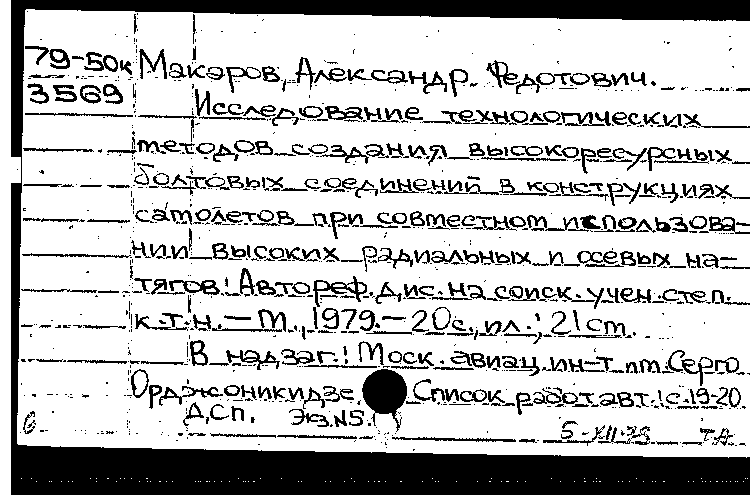 79-50к Макаров, Александр Федотович.
3569 Исследование технологических
методов создания высокоресурсных
болтовых соединений в конструкциях
самолетов при совместном использова-
нии высоких радиальных и осевых на-
тягов: Автореф. дис. на соиск. учен. степ.
к.т.н. — М., 1979. — 20с., ил.; 21см.
В надзаг.: Моск. авиац. ин-т им. Серго
Орджоникидзе. Список работ авт.: с. 19-20.
Дсп. Экз. N5.
5-XII-79 ТА